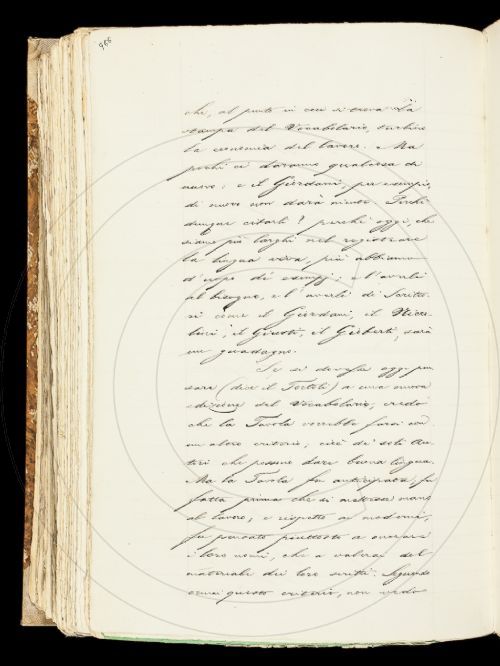 966
che, al punto in cui si trova la
stampa del Vocabolario, turbino
la economia del lavoro. Ma
pochi ci daranno qualcosa di
nuovo; e il Giordani, per esempio,
di nuovo non darà niente. Perchè
dunque citarli? perchè oggi, che
siamo più larghi nel registrare
la lingua viva, più abbiamo
d'uopo di esempj: e l'averli
al bisogno, e l'averli di Scritto-
ri come il Giordani, il Nicco-
lini, il Giusti, il Gioberti, sarà
un guadagno.
Se si dovesse oggi pen
sare (dice il Tortoli) a una nuova
edizione del Vocabolario, credo
che la Tavola vorrebbe farsi con
un altro criterio, cioè di soli Au-
tori che possono dare buona lingua.
Ma la Tavola fu anticipata, fu
fatta prima che si mettesse mano
al lavoro; e rispetto ai moderni,
fu pensato piuttosto a onorare
i loro nomi, che a valersi del
materiale dei loro scritti. Seguendo
ora questo criterio, non vedo